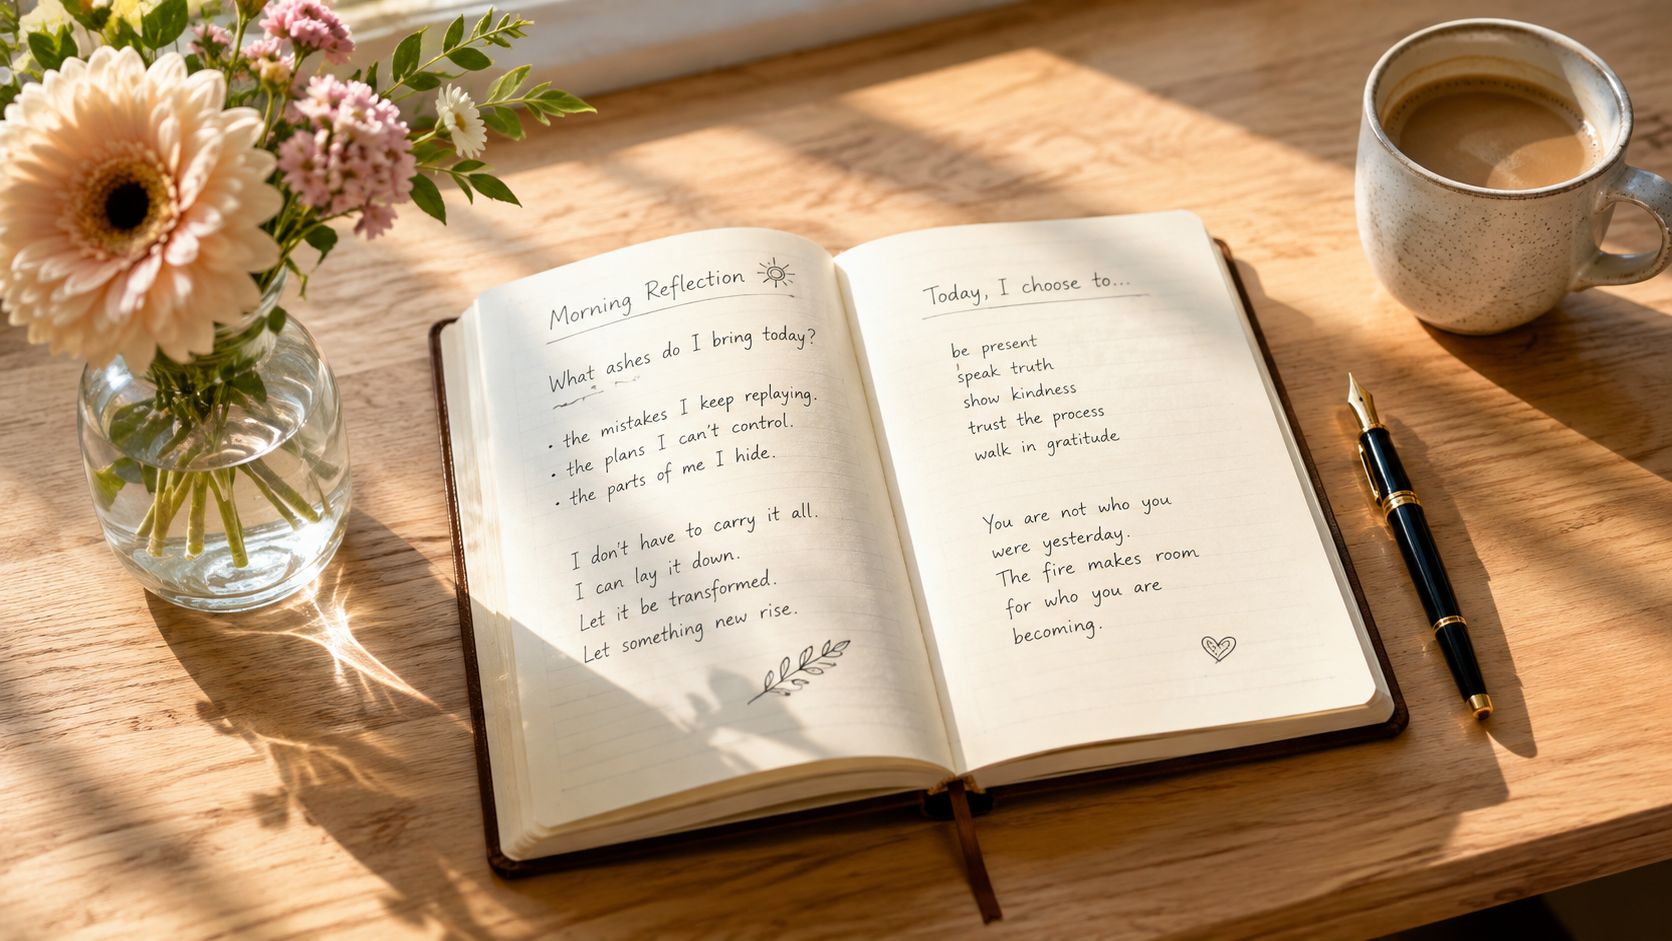 Morning Reflection
What ashes do I bring today?
• the mistakes I keep replaying.
• the plans I can't control.
• the parts of me I hide.
I don't have to carry it all.
I can lay it down.
Let it be transformed.
Let something new rise.
Today, I choose to...
be present
speak truth
show kindness
trust the process
walk in gratitude
You are not who you
were yesterday.
The fire makes room
for who you are
becoming.